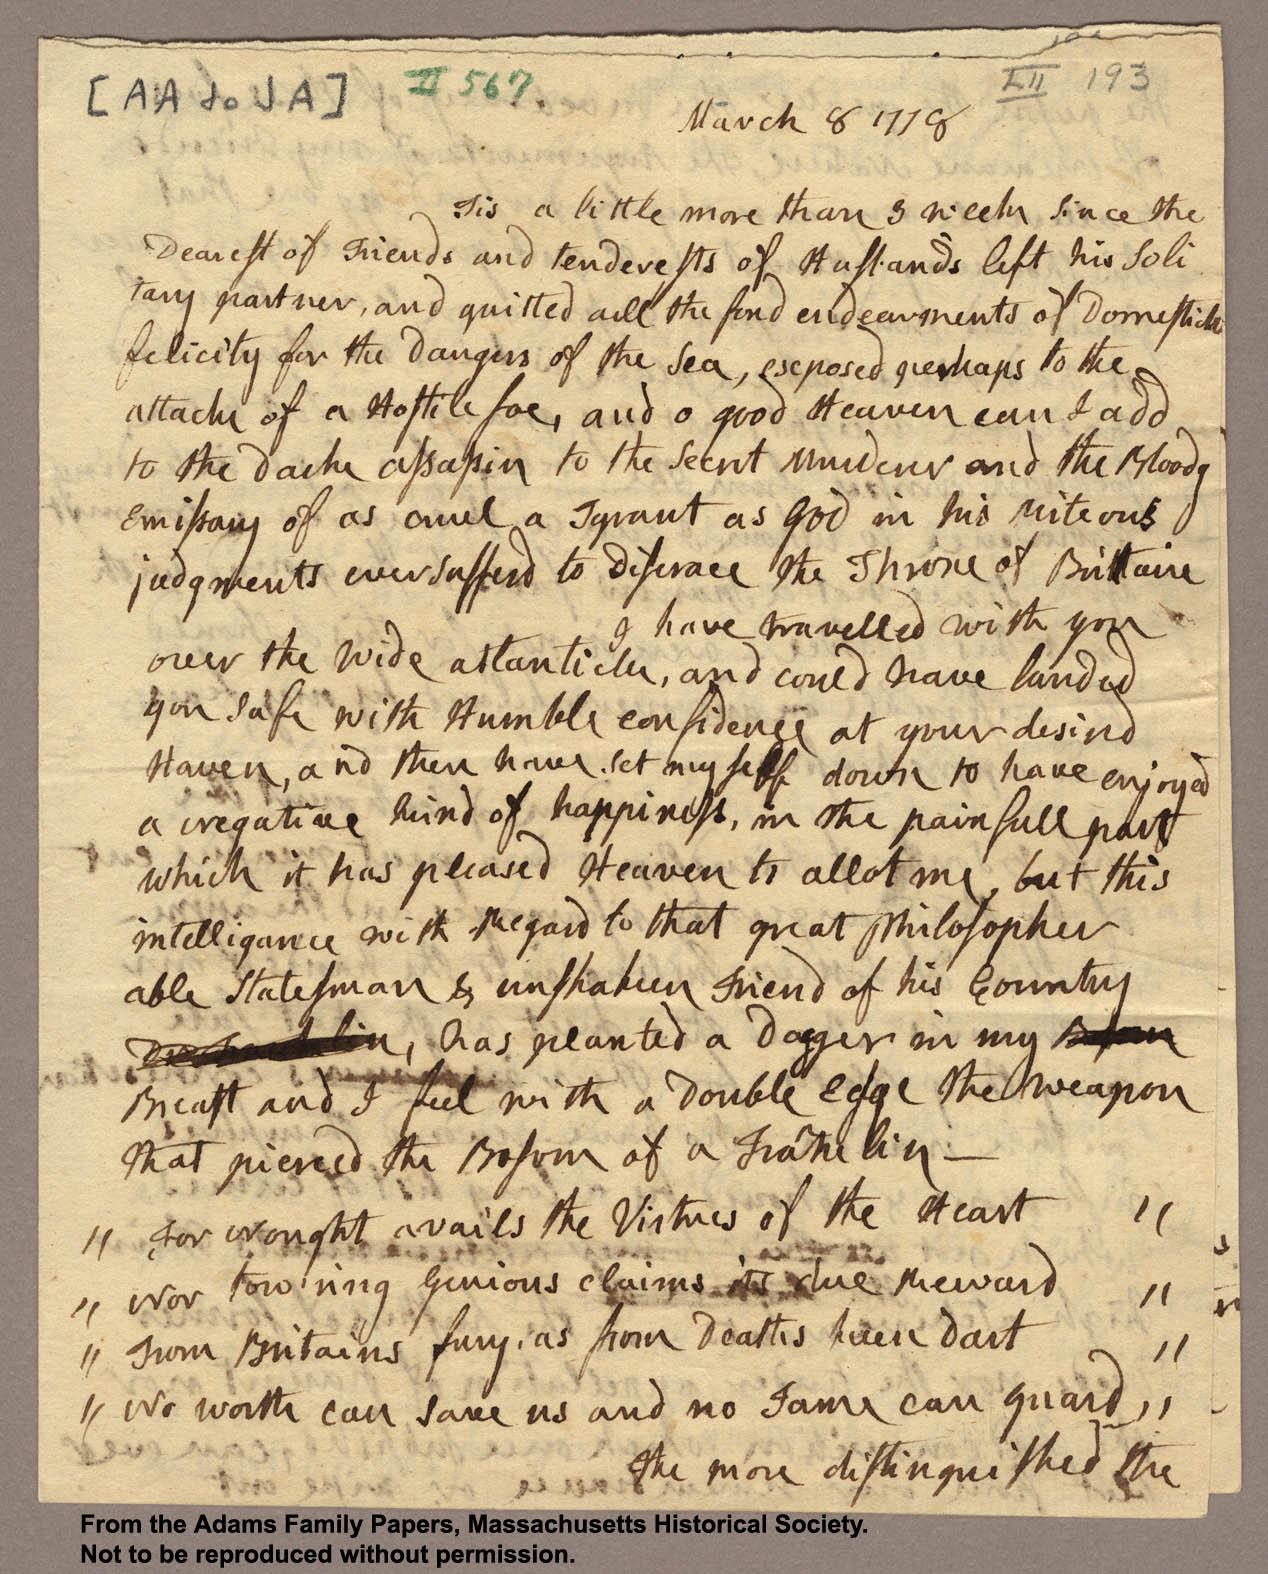 [AA to JA] II 567. LII 193
March 8 1778
Tis a little more than 3 week since the
Dearest of Friends and tenderests of Husbands left his Soli
tary partner, and quitted all the fond endearments of Domestick
felicity for the Dangers of the Sea, exposed perhaps to the
attack of a Hostile foe, and o good Heaven can I add
to the Dark assassin to the Secret Murderer and the Bloody
Emissary of as cruel a Tyrant as God in his riteous
judgments ever Sufferd to Disgrace the Throne of Brittain
I have travelled with you
over the wide atlantick, and could have landed
you Safe with Humble confidence at your desird
Haven, and then have set myself down to have enjoyed
a negative kind of happiness, in the painfull part
which it has pleased Heaven to allot me, but this
intelligance with Regard to that great Philosopher
able Statesman & unshaken Friend of his Country
, has planted a Dagger in my
Breast and I feel with a Double Edge the weapon
that pierced the Bosom of a Franklin —
" For nought avails the Virtues of the Heart "
" Nor tow'ring Genious claims its due Reward "
" From Britains fury, as from Deaths keen Dart "
" No worth can save us and no Fame can guard "
the more distinguished the
From the Adams Family Papers, Massachusetts Historical Society.
Not to be reproduced without permission.